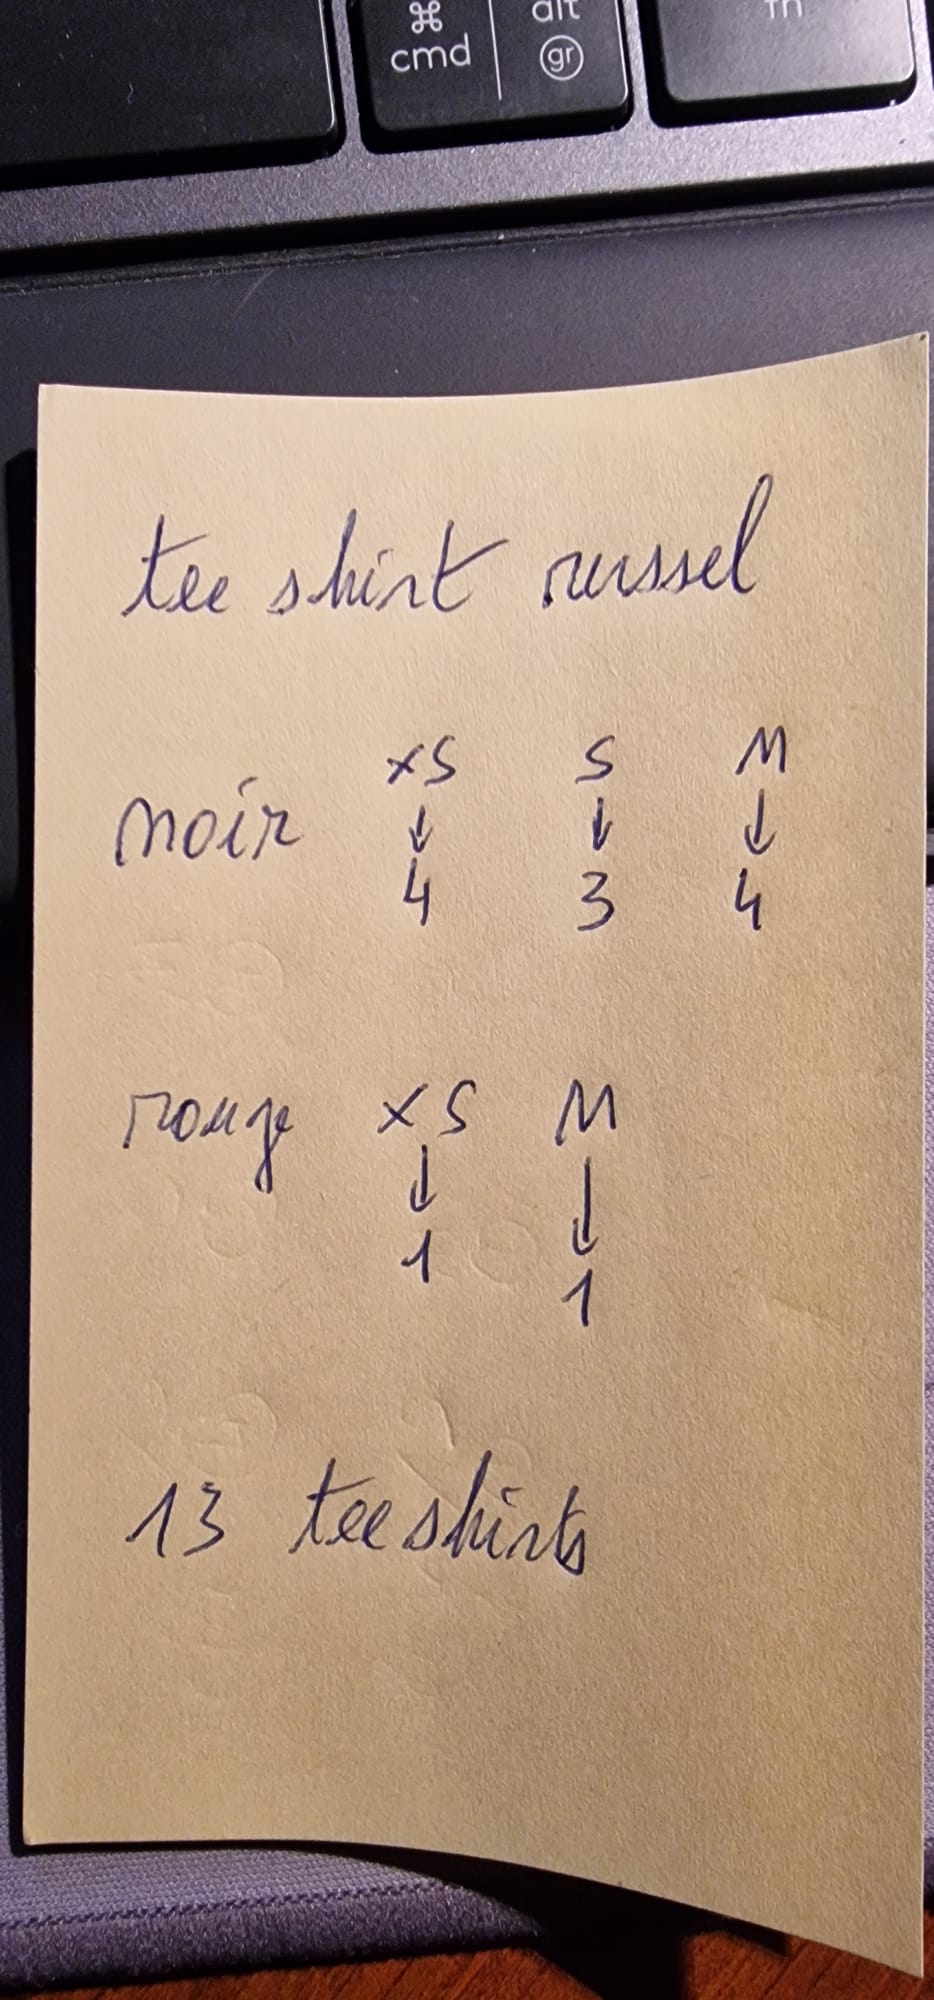 ⌘ alt fn
cmd gr
tee shirt russel
XS S M
noir ↓ ↓ ↓
4 3 4
rouge XS M
↓ ↓
1 1
13 tee shirts